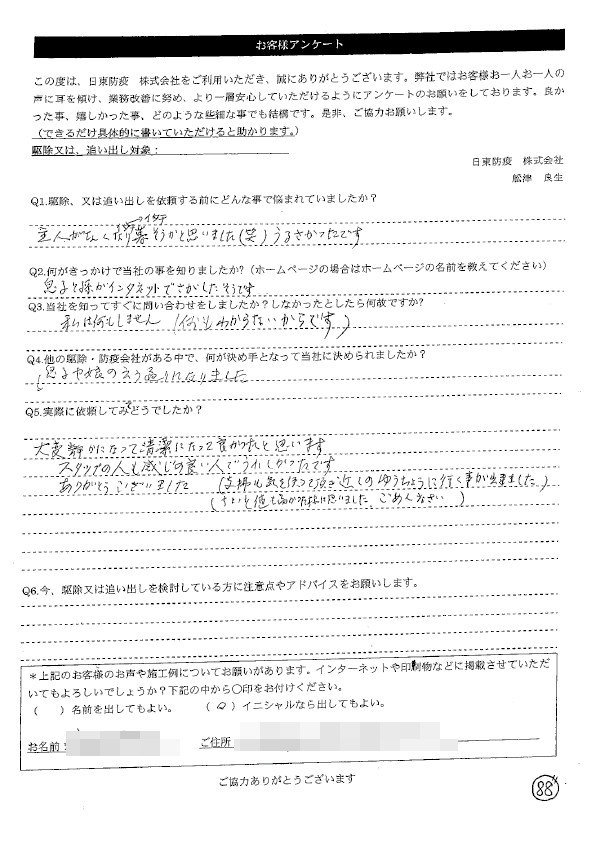 お客様アンケート
この度は、日東防疫 株式会社をご利用いただき、誠にありがとうございます。弊社ではお客様お一人お一人の
声に耳を傾け、業務改善に努め、より一層安心していただけるようにアンケートのお願いをしております。良か
った事、嬉しかった事、どのような些細な事でも結構です。是非、ご協力お願いします。
(できるだけ具体的に書いていただけると助かります。)
駆除又は、追い出し対象:
日東防疫 株式会社
舩津 良生
Q1.駆除、又は追い出しを依頼する前にどんな事で悩まれていましたか?
イタチ
主人がなくなり暮そうかと思いました(笑)うるさかったです
Q2.何がきっかけで当社の事を知りましたか?(ホームページの場合はホームページの名前を教えてください)
息子と孫がインタネットでさがしたそうです
Q3.当社を知ってすぐに問い合わせをしましたか?しなかったとしたら何故ですか?
私は何もしません (何もわからないからです)
Q4.他の駆除・防疫会社がある中で、何が決め手となって当社に決められましたか?
息子や娘の云う通りになりました
Q5.実際に依頼してみてどうでしたか?
大変静かになって清潔になって良かったと思います
スタッフの人も感じの良い人でうれしかったです
ありがとうございました (主婦も気を使って頂き近しのゆうちょうに行く事が出来ました)
(ちょっと値も高かった様に思いました ごめんなさい)
Q6.今、駆除又は追い出しを検討している方に注意点やアドバイスをお願いします。
*上記のお客様のお声や施工例についてお願いがあります。インターネットや印刷物などに掲載させていただ
いてもよろしいでしょうか?下記の中から〇印をお付けください。
( )名前を出してもよい。 (〇)イニシャルなら出してもよい。
お名前: ご住所
ご協力ありがとうございます
88